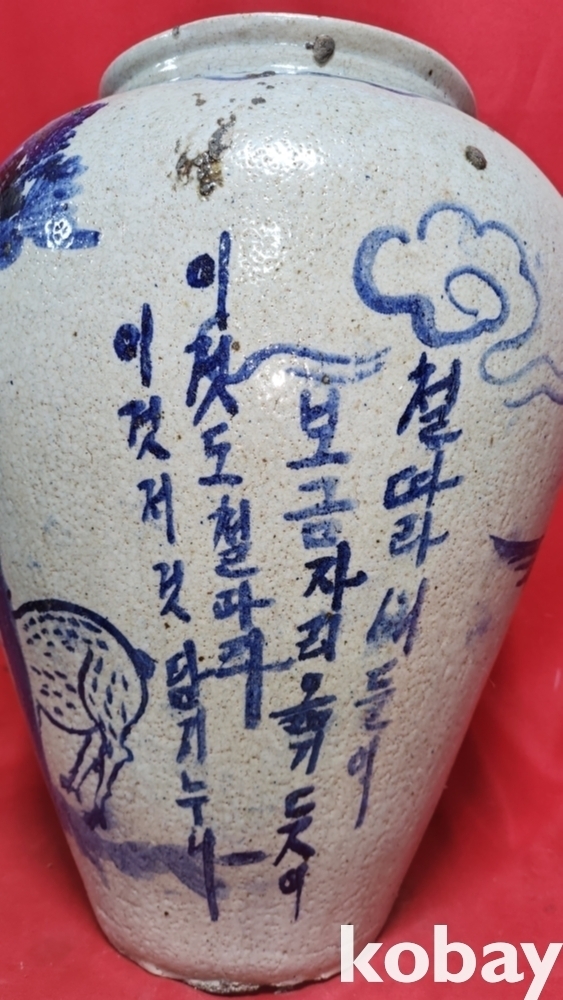 철따라 새들이
보금자리 옮기듯이
이것도 철따라
이것 저것 담기누나
kobay